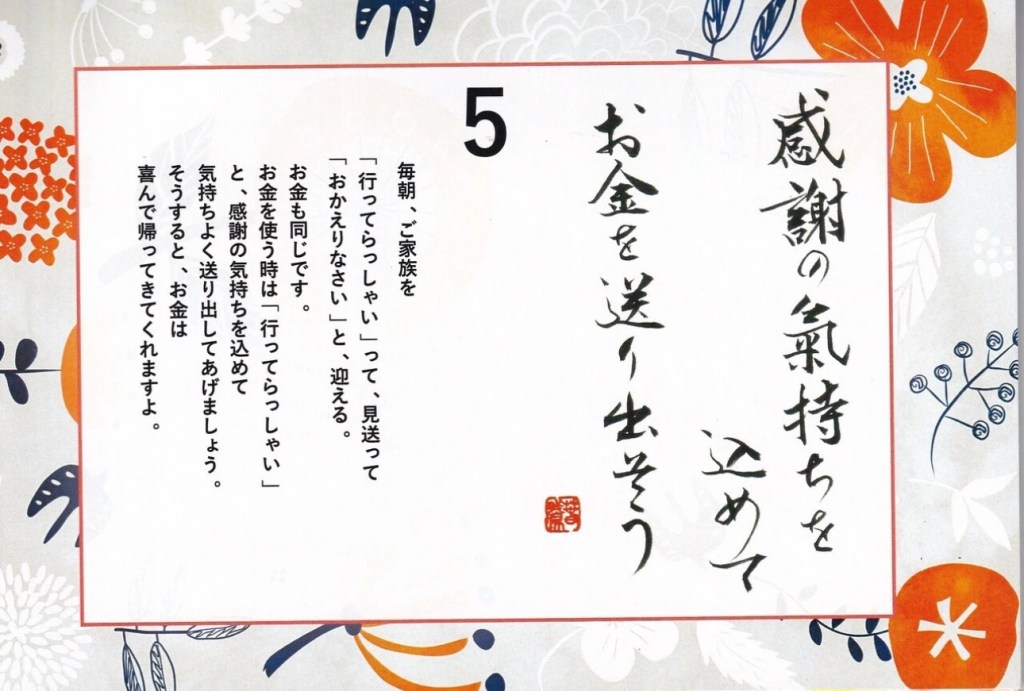 感謝の氣持ちを
込めて
お金を送り出そう
5
毎朝、ご家族を
「行ってらっしゃい」って、見送って
「おかえりなさい」と、迎える。
お金も同じです。
お金を使う時は「行ってらっしゃい」
と、感謝の気持ちを込めて
気持ちよく送り出してあげましょう。
そうすると、お金は
喜んで帰ってきてくれますよ。